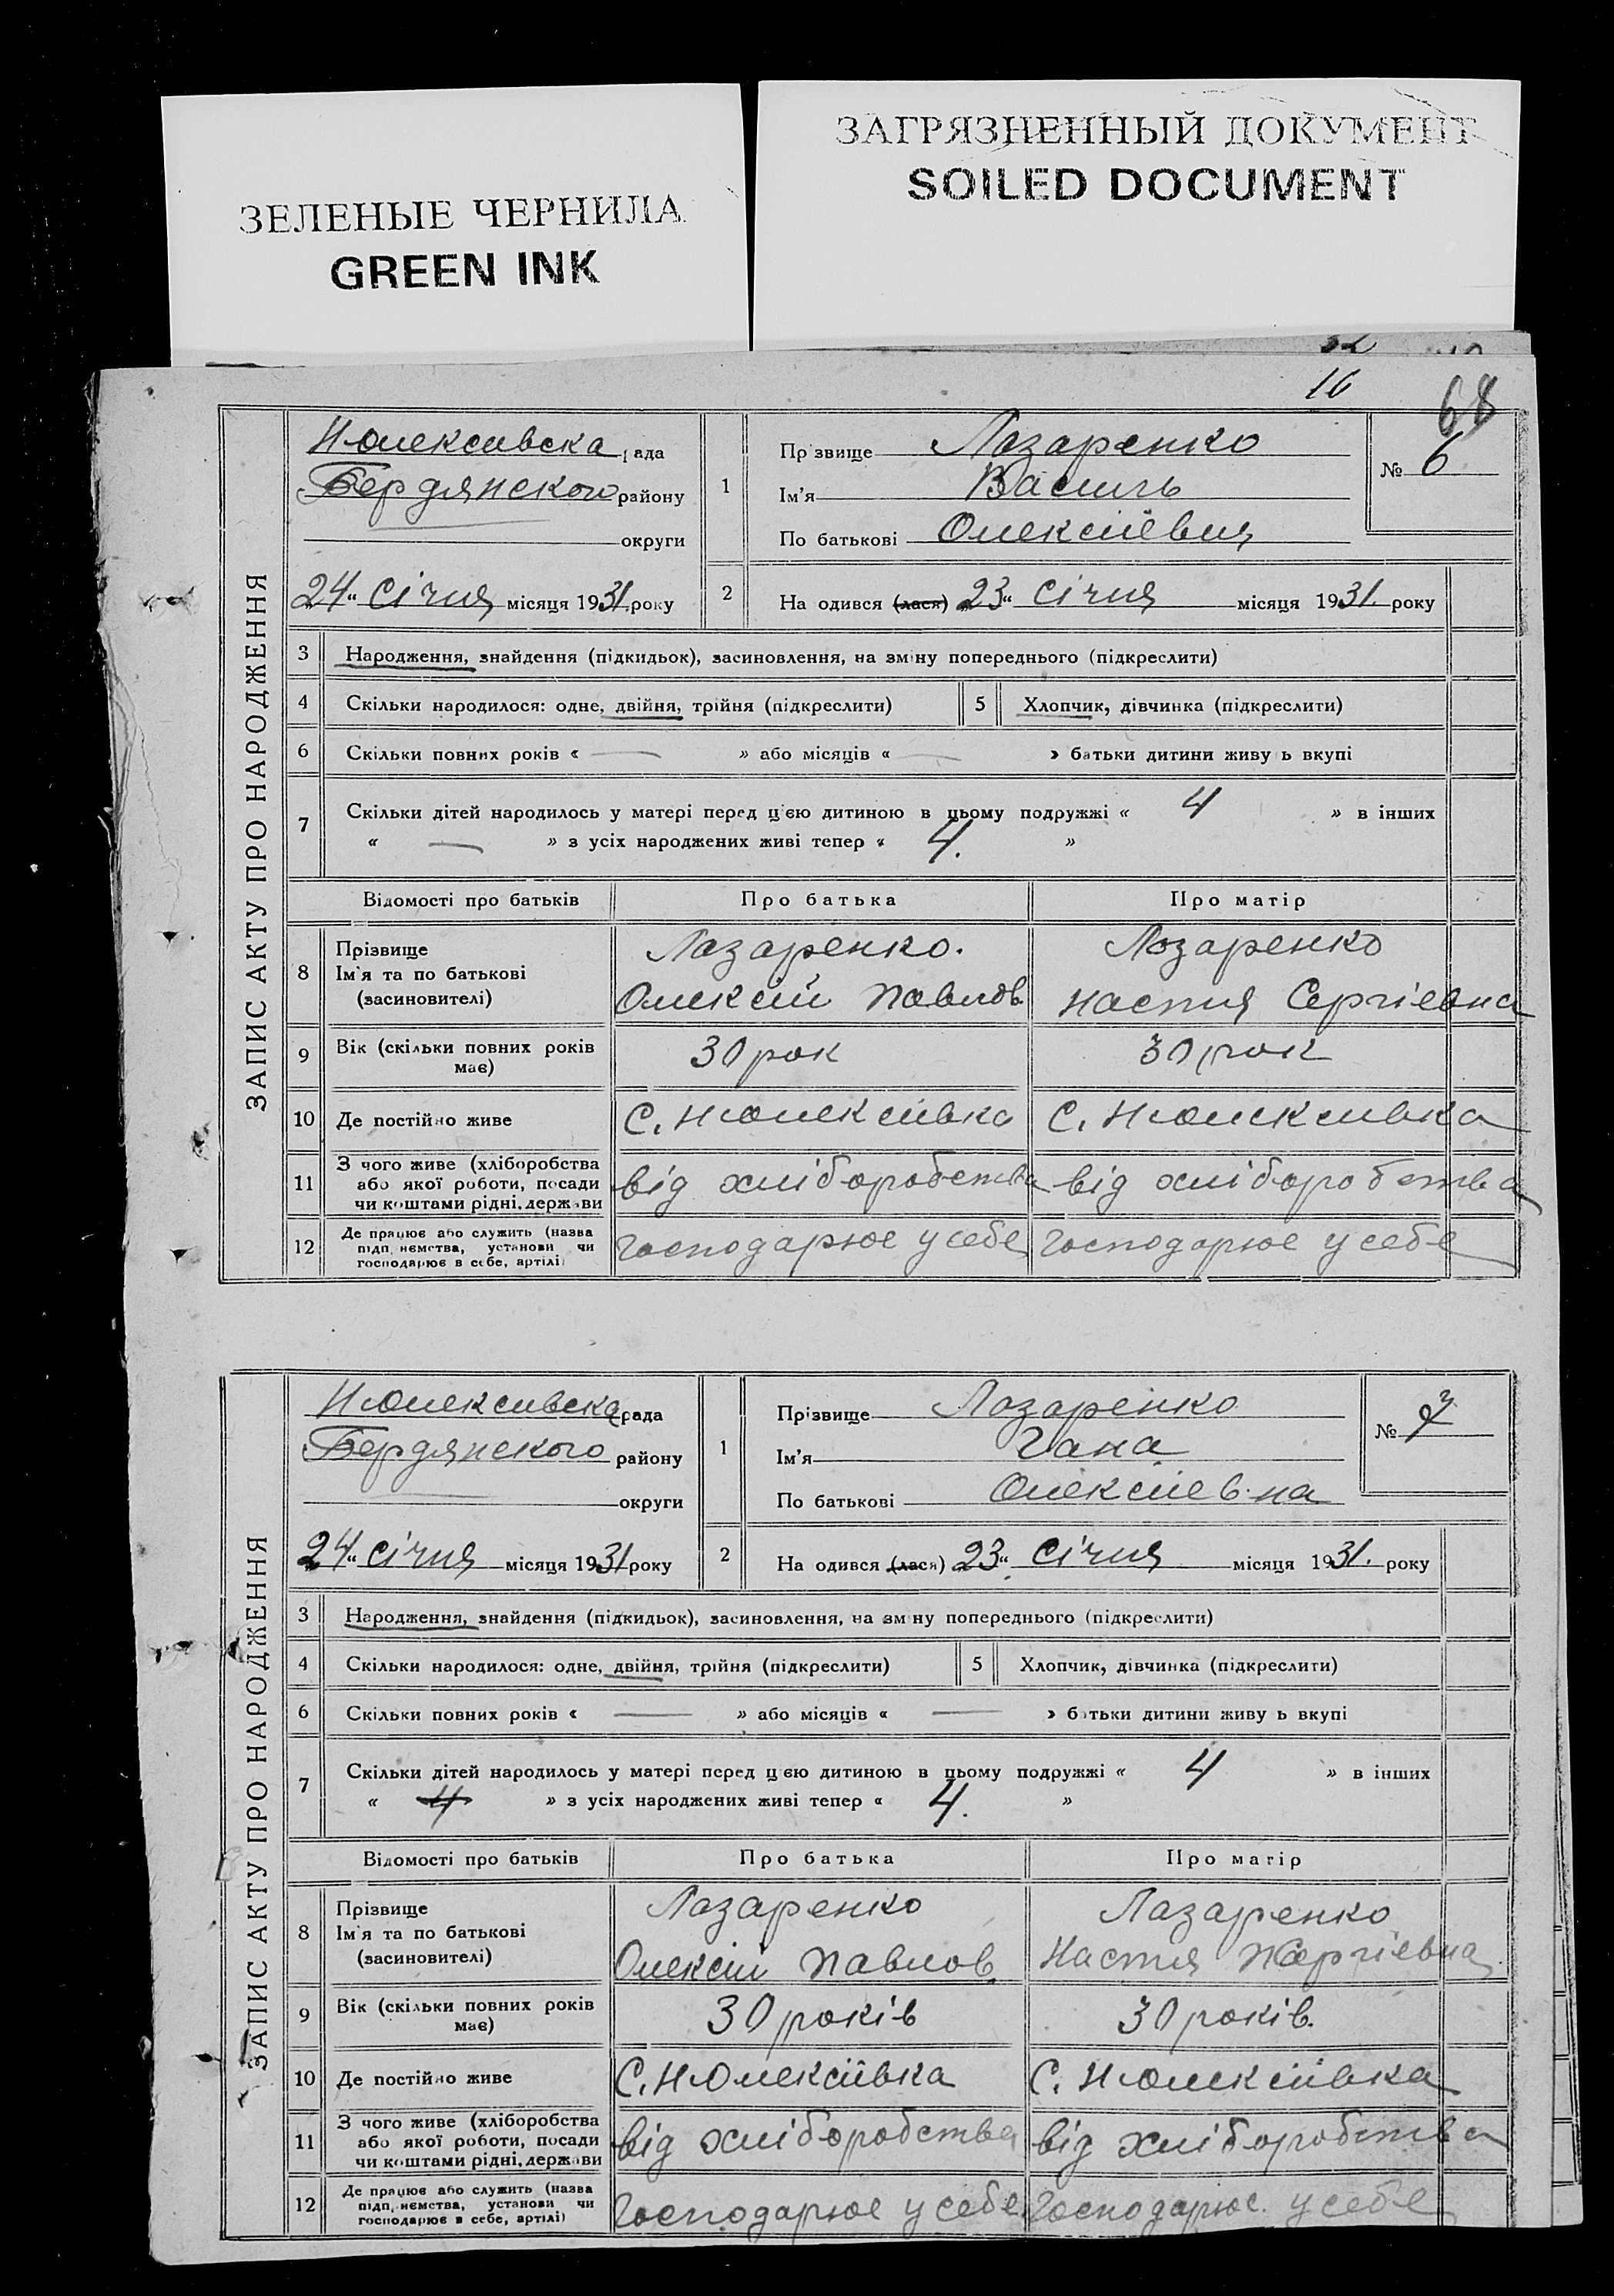 ЗЕЛЕНЫЕ ЧЕРНИЛА
GREEN INK
ЗАГРЯЗНЕННЫЙ ДОКУМЕНТ
SOILED DOCUMENT
16
68
ЗАПИС АКТУ ПРО НАРОДЖЕННЯ
Нолексивска рада
Бердянского району
округи
24 " січня місяця 1931 року
1
Прізвище Лазаренко
Ім'я Василь
По батькові Олексіевич
№ 6
2 На одився (лася) 23 " січня місяця 1931. року
3 Народження, знайдення (підкидьок), засиновлення, на зміну попереднього (підкреслити)
4 Скільки народилося: одне, двійня, трійня (підкреслити) 5 Хлопчик, дівчинка (підкреслити)
6 Скільки повних років « — » або місяців « — » батьки дитини живу ь вкупі
7 Скільки дітей народилось у матері перед цією дитиною в цьому подружжі « 4 » в інших
« — » з усіх народжених живі тепер « 4. »
Відомості про батьків Про батька Про матір
8 Прізвище Лазаренко. Лозаренко
Ім'я та по батькові Олексій Павлов Настя Сергіевна
(засиновителі)
9 Вік (скільки повних років 30 рок 30 рок
має)
10 Де постійно живе С. Нолексиівка С. Нолексиівка
11 З чого живе (хліборобства
або якої роботи, посади від хліборобства від хліборобства
чи коштами рідні, держави
12 Де працює або служить (назва
підп, иємства, установи чи господарює у себе господарює у себе
господарює в себе, артілі)
ЗАПИС АКТУ ПРО НАРОДЖЕННЯ
Нолексивска рада
Бердянского району
округи
24 " січня місяця 1931 року
1
Прізвище Лазаренко
Ім'я Гана
По батькові Олексіевна
№
2 На одився (лася) 23 " січня місяця 1931. року
3 Народження, знайдення (підкидьок), засиновлення, на зміну попереднього (підкреслити)
4 Скільки народилося: одне, двійня, трійня (підкреслити) 5 Хлопчик, дівчинка (підкреслити)
6 Скільки повних років « — » або місяців « — » батьки дитини живу ь вкупі
7 Скільки дітей народилось у матері перед цією дитиною в цьому подружжі « 4 » в інших
« 4 » з усіх народжених живі тепер « 4. »
Відомості про батьків Про батька Про матір
8 Прізвище Лазаренко Лазаренко
Ім'я та по батькові Олексій Павлов Настя Сергіевна
(засиновителі)
9 Вік (скільки повних років 30 років 30 років.
має)
10 Де постійно живе С. Нолексіївка С. Нолексіївка
11 З чого живе (хліборобства
або якої роботи, посади від хліборобства від хліборобства
чи коштами рідні, держави
12 Де працює або служить (назва
підп, иємства, установи чи господарює у себе господарює у себе
господарює в себе, артілі)